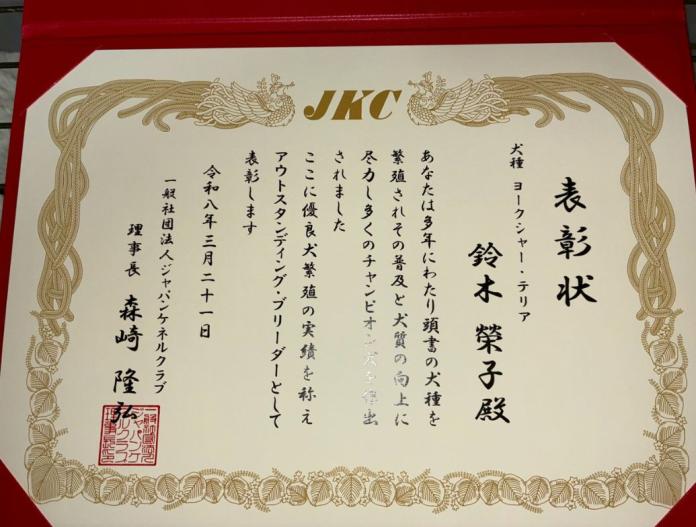 JKC
表彰状
犬種 ヨークシャー・テリア
鈴木 榮子殿
あなたは多年にわたり頭書の犬種を
繁殖されその普及と犬質の向上に
尽力し多くのチャンピオン犬を作出
されました
ここに優良犬繁殖の実績を称え
アウトスタンディング・ブリーダーとして
表彰します
令和八年三月二十一日
一般社団法人ジャパンケネルクラブ
理事長 森崎 隆弘